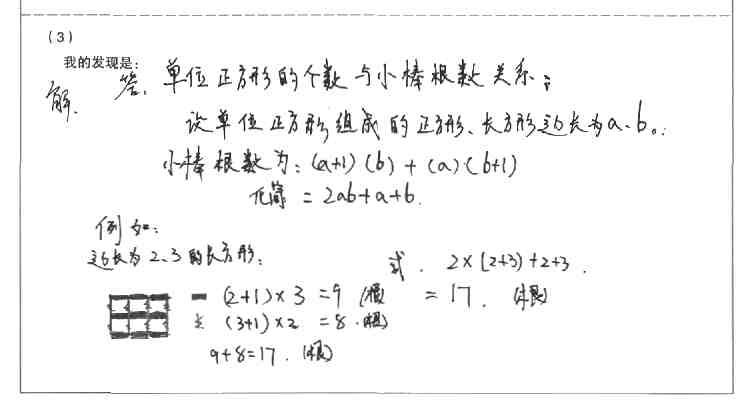 (3)
我的发现是:
解. 答. 单位正方形的个数与小棒根数关系:
设单位正方形组成的正方形、长方形边长为a、b。
小棒根数为:(a+1)(b)+(a)·(b+1)
化简 = 2ab+a+b.
例如:
边长为2、3的长方形:
式. 2×(2+3)+2+3.
(2+1)×3=9 (根) = 17. (根)
(3+1)×2 =8.(根)
9+8=17. (根)